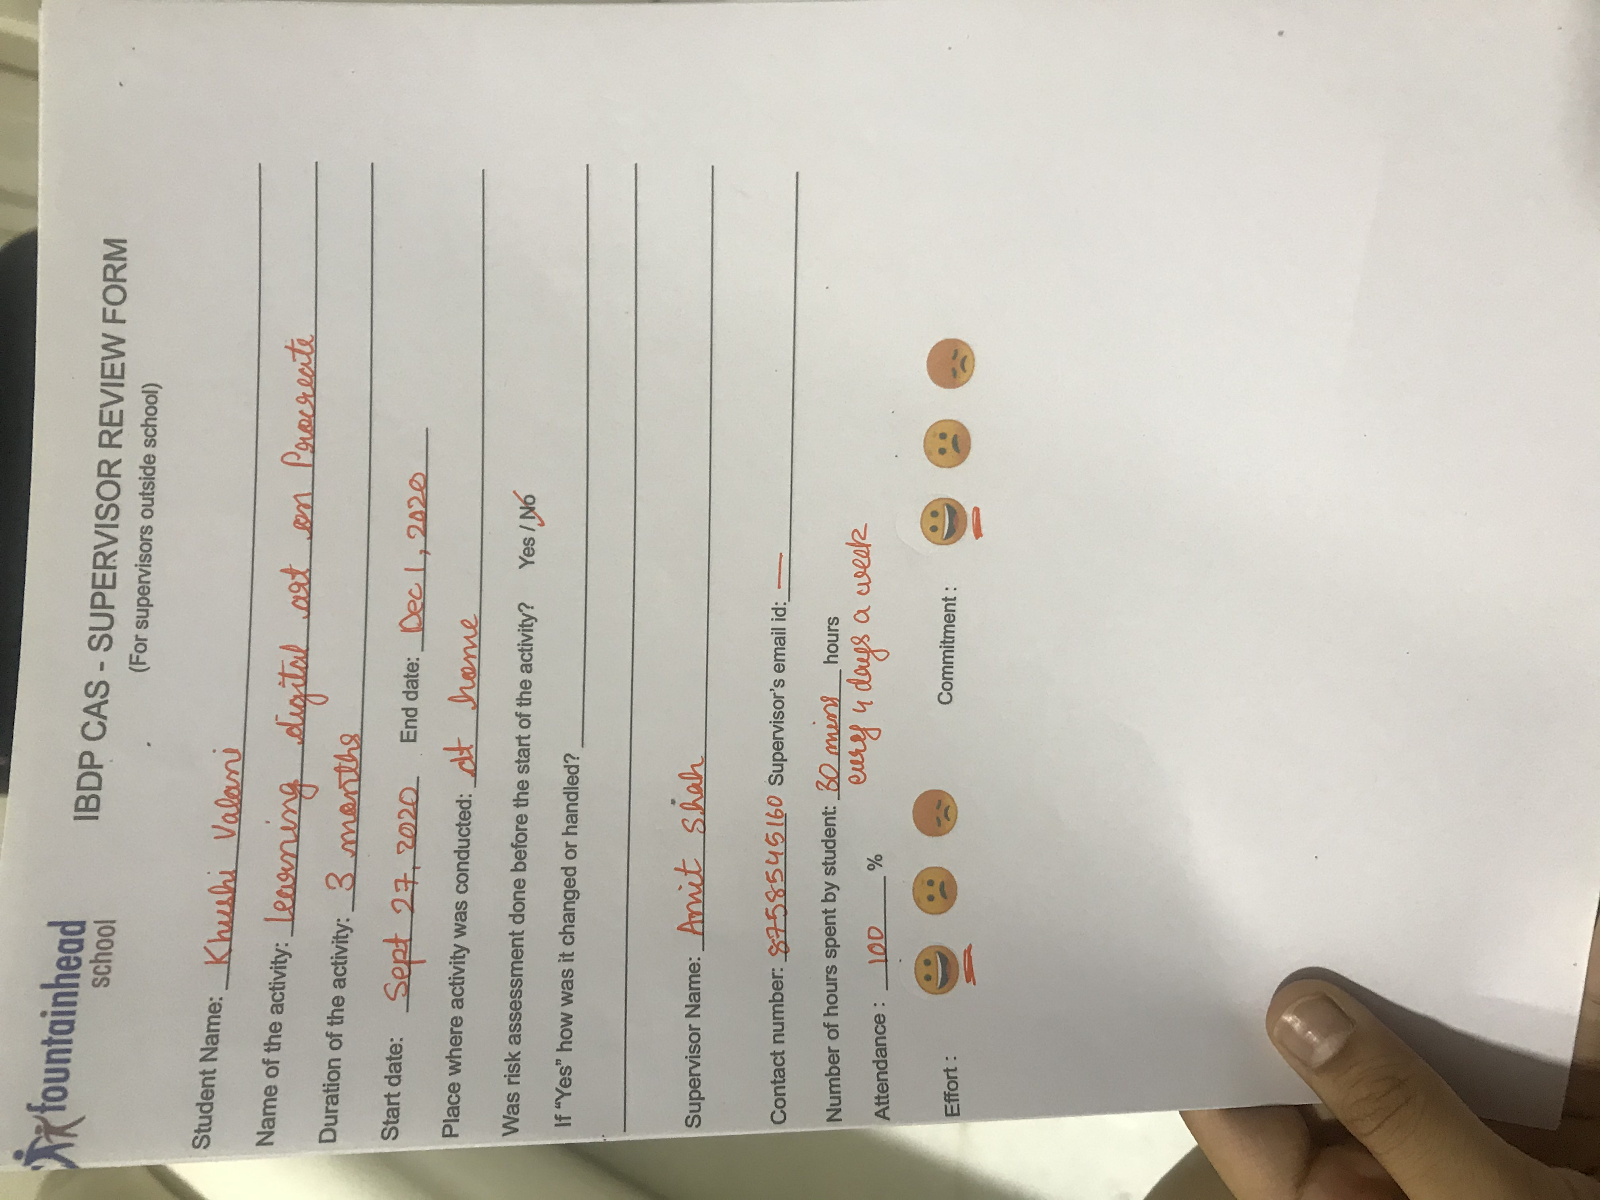 fountainhead
school
IBDP CAS - SUPERVISOR REVIEW FORM
(For supervisors outside school)
Student Name: Khushi Valani
Name of the activity: learning digital art on Procreate
Duration of the activity: 3 months
Start date: Sept 27, 2020 End date: Dec 1, 2020
Place where activity was conducted: At home
Was risk assessment done before the start of the activity? Yes / No
If "Yes" how was it changed or handled?
Supervisor Name: Amit Shah
Contact number: 8758545160 Supervisor's email id: —
Number of hours spent by student: 30 mins hours
every 4 days a week
Attendance : 100 %
Effort : Commitment :